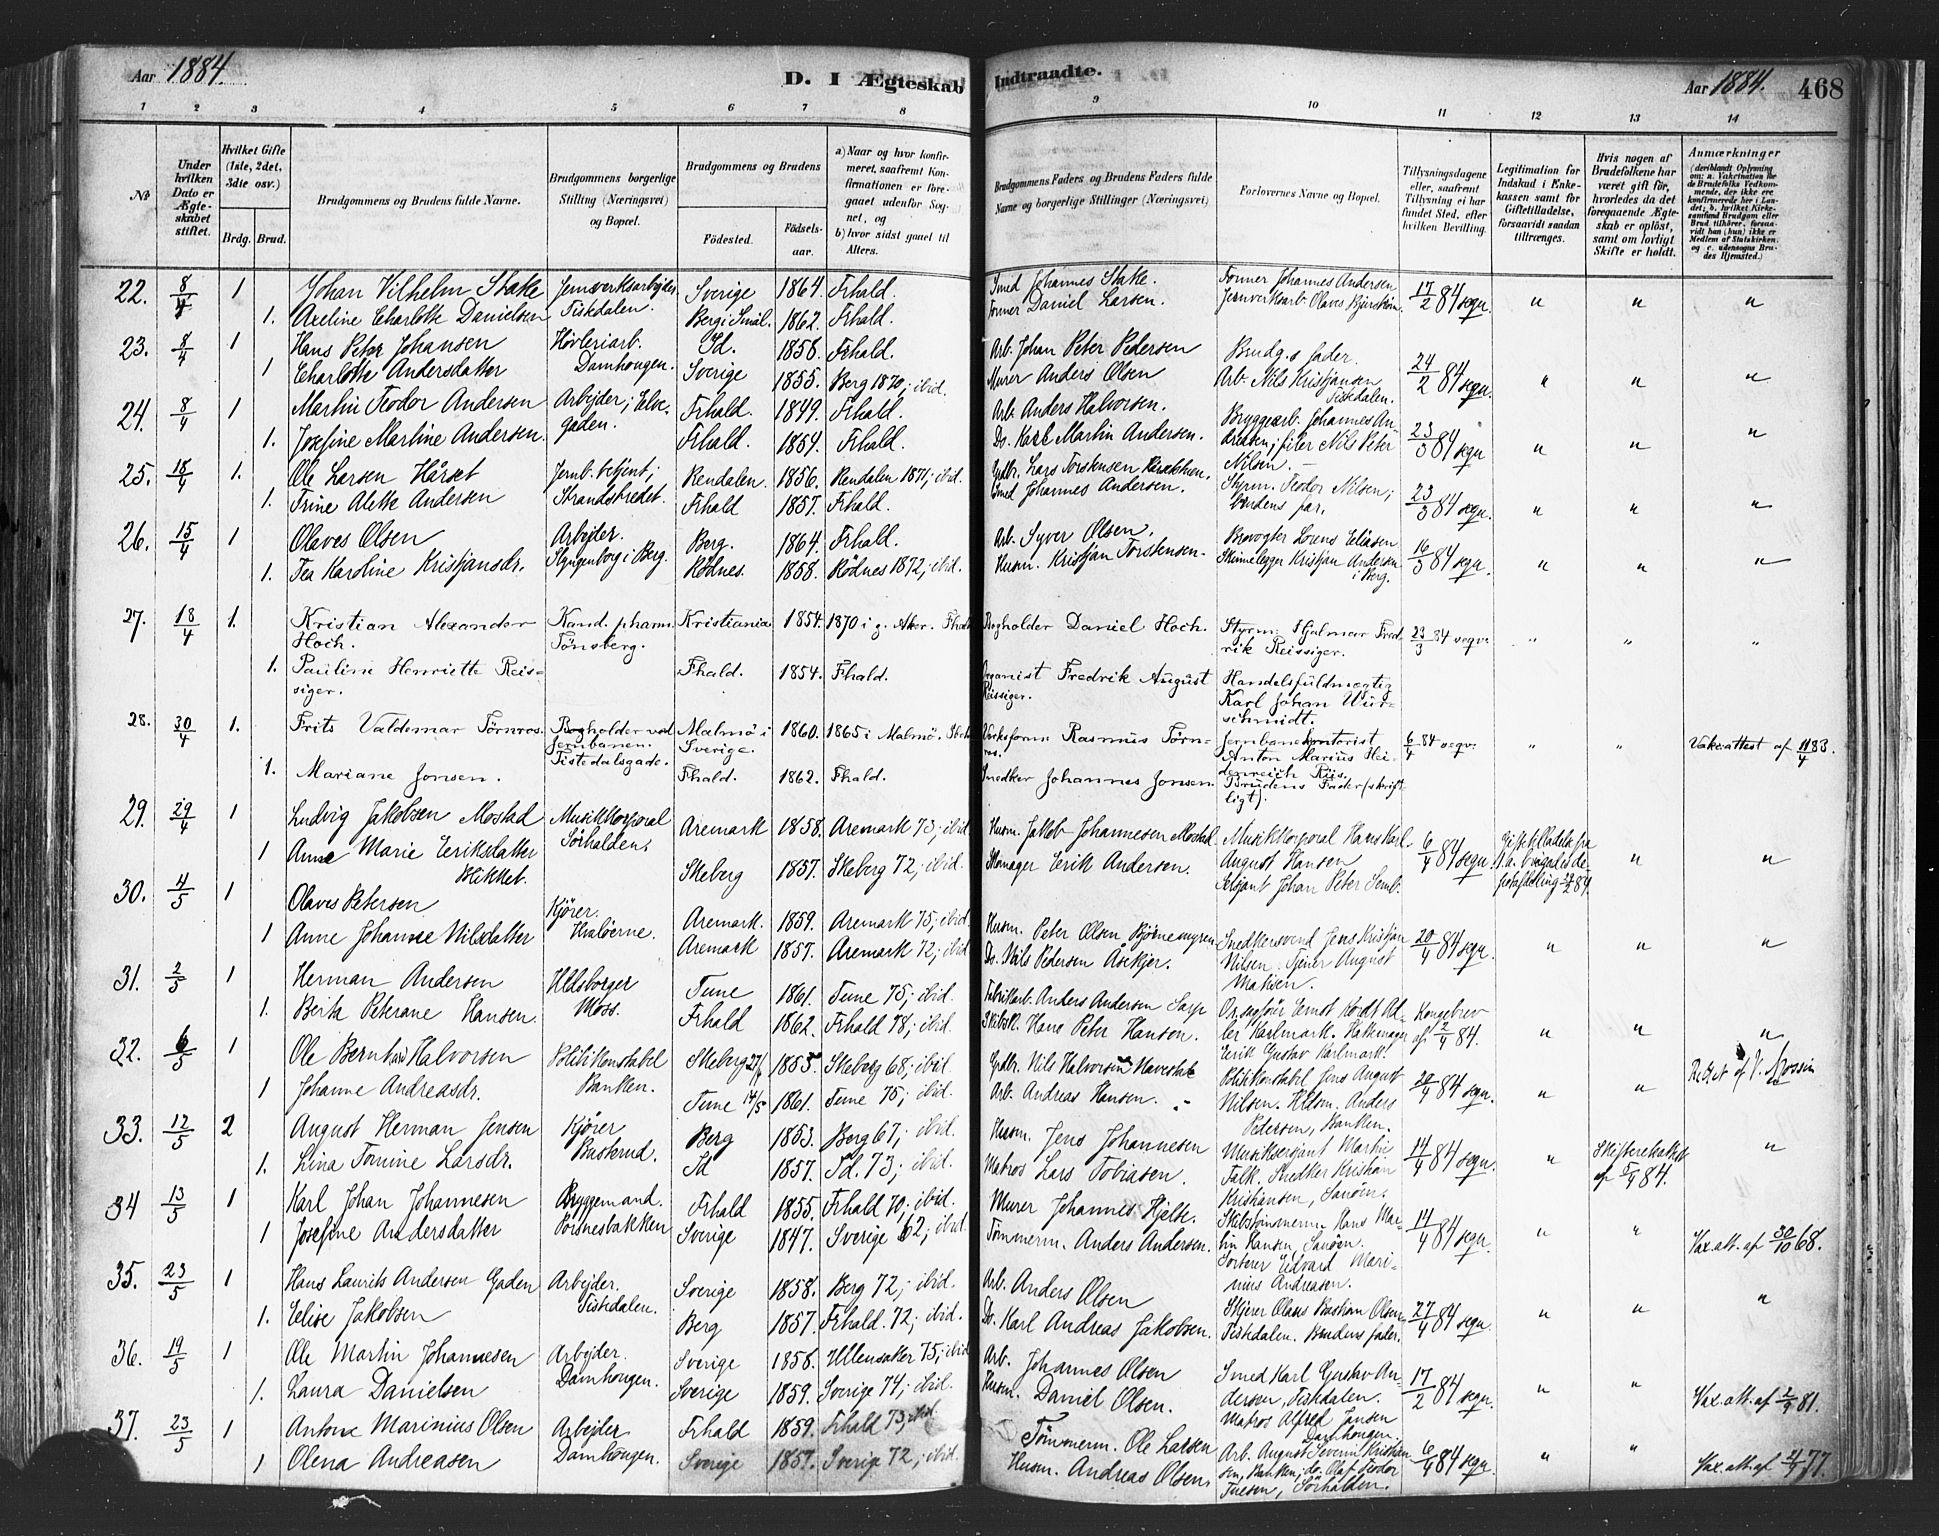 Aar 1884.
D. I Ægteskab Indtraadte.
Aar 1884. 468
1 2 3 4 5 6 7 8 9 10 11 12 13 14
No
Under hvilken Dato er Ægteskabet stiftet.
Hvilket Gifte (1ste, 2det, 3die osv.)
Brdg. Brud.
Brudgommens og Brudens fulde Navne.
Brudgommens borgerlige Stilling (Næringsvei) og Bopæl.
Brudgommens og Brudens
Födested. Födsels-aar.
a) Naar og hvor konfirmeret, saafremt Konfirmationen er foregaaet udenfor Sognet, og
b) hvor sidst gaaet til Alters.
Brudgommens Faders og Brudens Faders fulde Navne og borgerlige Stillinger (Næringsvei)
Forlovernes Navne og Bopæl.
Tillysningsdagene eller, saafremt Tillysning ei har fundet Sted, efter hvilken Bevilling.
Legitimation for Indskud i Enkekassen samt for Giftetilladelse, forsaavidt saadan tiltrænges.
Hvis nogen af Brudefolkene har været gift før, hvorledes da det foregaaende Ægteskab er oplöst, samt om lovligt Skifte er holdt.
Anmærkninger
(deriblandt Oplysning om: a. Vakcination
22. 8/4 1 Johan Vilhelm Stake Jernverksarbejder Sverige 1864. Frhald. Smed Johannes Stake. Former Johannes Andersen 17/2 84 segn. " " "
1. Axeline Charlotte Danielsen Tistdalen. Berg i Smål. 1862. Frhald. Former Daniel Larsen. Jernverksarb. Olaves
23. 8/4 1 Hans Peter Johansen Høvleriarb. Id. 1858. Frhald. Arb. Johan Peter Pedersen Brudg.s fader. 24/2 84 segn. " " "
1 Charlotte Andersdatter Damhougen. Sverige 1855. Berg 1870; ibid. Murer Anders Olsen Arb. Nils Kristjansen Tistedalen.
24. 8/4 1 Martin Teodor Andersen Arbejder; Elvegaden. Frhald. 1849. Frhald. Arb. Anders Halvorsen. Bryggearb. Johannes Andreasen; filer Nils Peter Nilsen. 23/3 84 segn " " "
1. Josefine Martine Andersen. Frhald. 1854. Frhald. Do. Karl Martin Andersen.
25. 18/4 1. Ole Larsen Hårset Jernb. betjent; Rendalen. 1856. Rendalen 1871; ibid. Gdbr. Lars Torstensen Styrm. Teodor Nilsen; 23/3 84 segn. " " "
1. Trine Alette Andersen Strandstredet. Frhald 1857. Frhald. Smed Johannes Andersen. brudens far.
26. 15/4 1 Olaves Olsen Arbejder. Berg. 1864. Frhald. Arb. Syver Olsen. Brovogter Lorens Eliasen 16/3 84 segn. " " "
1. Tea Karoline Kristjansdr. i Berg. Rødnes. 1858. Rødnes 1872; ibid. Husm. Kristjan Torstensen. Kristjan Andersen i Berg.
27. 18/4 1. Kristian Alexander Hoch. Kand. pharm. Tönsberg. Kristiania 1854. 1870 i g. Aker. Fhald Bogholder Daniel Hoch. Styrm. Hjalmar Fredrik Reissiger. 23/3 84 segv. " " "
1. Pauline Henriette Reissiger. Fhald. 1854. Fhald. Organist Fredrik August Reissiger. Handelsfuldmægtig Karl Johan Würschmidt.
28. 30/4 1. Frits Valdemar Törnros. Bogholder ved Jernbanen. Tistedalsgade. Malmö i Sverige. 1860. 1865 i Malmö. Rasmus Törnros. Anton Marius Heidenreich Riis. 6/4 84 segv. " " Vakc.attest af 11/4 83.
1. Mariane Jonsen. Fhald. 1862. Fhald. Snedker Johannes Jonsen. Brudens Fader (skriftligt).
29. 29/4 1 Ludvig Jakobsen Mostad Musikkorporal Sörhalden. Aremark 1858. Aremark 73; ibid. Husm. Jakob Johannesen Mostad. Musikkorporal Hans Karl August Hansen 6/4 84 segn Giftetilladelse fra " "
1 Anne Marie Eriksdatter Skikket. Skeberg 1857. Skeberg 72; ibid. Skomager Erik Andersen. Serjant Johan Peter
30. 4/5 1 Olaves Petersen Kjører. Hvaløerne. Aremark. 1859. Aremark 75; ibid. Husm. Peter Olsen Bjørnemyren Snedkersvend Jens Kristjan Nilsen. Tjener August Matisen. 20/4 84 segn. " " "
1 Anne Johanne Nilsdatter Aremark 1857. Aremark 72; ibid Do. Nils Pedersen Åsekjer.
31. 2/5 1 Herman Andersen Ildsborger Moss. Tune 1861. Tune 75; ibid. Fabrikarb. Anders Andersen Sarp Kongebrev af 2/4 84. " " "
1. Berta Peterane Hansen. Frhald 1862. Frhald 78; ibid. Skibsk. Hans Peter Hansen. Erik Gustav Karlmark.
32. 6/5 1 Ole Bernhard Halvorsen Politikonstabel Banken. Skeberg 27/1 1855 Skeberg 68; ibid. Gdbr. Nils Halvorsen Politikonstabel Jens August Nilsen. Anders Pedersen, Banken. 20/4 84 segn. " "
1 Johanne Andreasdr. Tune 14/5 1861. Tune 75; ibid. Arb. Andreas Hansen.
33. 12/5 2 August Herman Jensen Kjører Busterud. Berg 1853. Berg 67; ibid. Husm. Jens Johannesen Musiksersjant Martin Falk. Snedker Kristian Kristiansen, Sanöen. 14/4 84 segn. " Skifteretsattest af 5/4 84. "
1. Lina Tomine Larsdr. Id 1857. Id. 73; ibid. Matros Lars Tobiasen.
34 13/5 1 Karl Johan Johannesen Bryggemand. Frhald 1855. Frhald 70; ibid. Murer Johannes Hjelte. Skibstømmerm. Hans Martin Hansen, Sanöen. 14/4 84 segn. " " Vax. att. af 30/10 68.
1 Josefine Andersdatter Pörsnesbakken Sverige 1847. Sverige 62; ibid Tømmerm. Anders Andersen. Sorterer Edvard Marinius Andreasen.
35. 23/5 1 Hans Laurits Andersen Gaden Arbejder. Tistdalen. Sverige 1858. Berg 72; ibid. Arb. Anders Olsen Olaus Bastian Olsen 27/4 84 segn. " " "
1. Elise Jakobsen Berg 1857. Frhald. 72; ibid. Do. Karl Andreas Jakobsen. Tistdalen. Brudens fader.
36. 19/5 1 Ole Martin Johannesen Arbejder. Damhougen. Sverige 1856. Ullensaker 75; ibid Arb. Johannes Olsen Smed Karl Gustav Andersen, Tistdalen. 17/2 84 segn. " " Vax. att. af 2/9 81.
1. Laura Danielsen Sverige 1859. Sverige 74; ibid. Husm. Daniel Olsen. Matros Alfred Jansen Damhougen.
37. 23/5 1 Antone Marinius Olsen Arbejder Damhougen. Frhald 1859. Frhald 73; ibid Tömmerm. Ole Larsen Arb. August Severin Kristiansen, Banken; do. Olaf Teodor Tuesen, Sörhalden. 6/4 84 segn. " " Vax. att. af 2/7 77.
1 Olena Andreasen Sverige 1857. Sverige 72; ibid. Husm. Andreas Olsen.